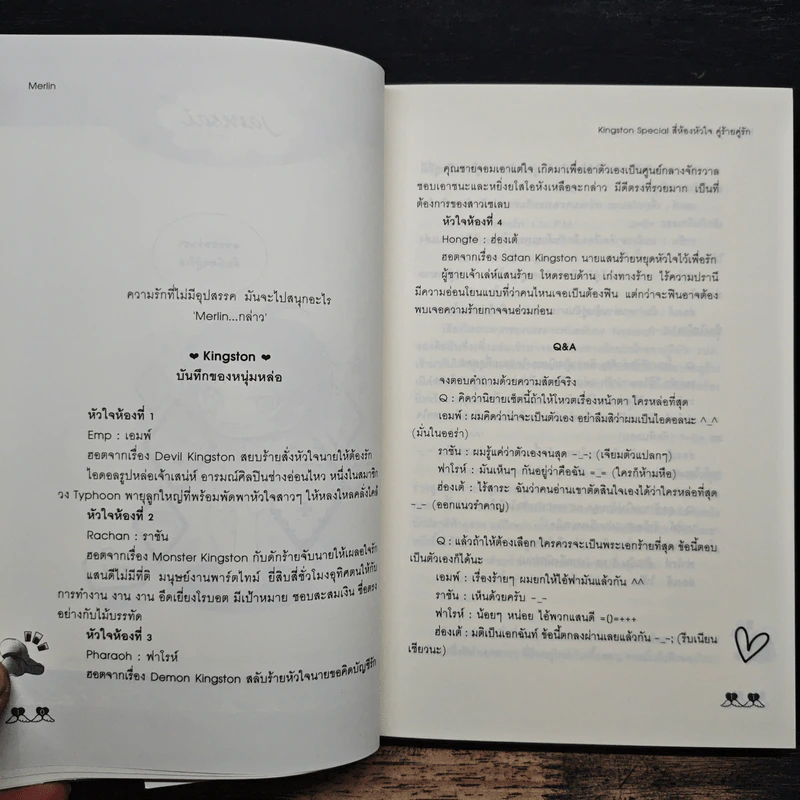 Merlin
ความรักที่ไม่มีอุปสรรค มันจะไปสนุกอะไร
'Merlin...กล่าว'
❤ Kingston ❤
บันทึกของหนุ่มหล่อ
หัวใจห้องที่ 1
Emp : เอมพ์
ฮอตจากเรื่อง Devil Kingston สยบร้ายสั่งหัวใจนายให้ต้องรัก
ไอดอลรูปหล่อเจ้าเสน่ห์ อารมณ์ศิลปินช่างอ่อนไหว หนึ่งในสมาชิก
วง Typhoon พายุลูกใหญ่ที่พร้อมพัดพาหัวใจสาวๆ ให้หลงใหลคลั่งไคล้
หัวใจห้องที่ 2
Rachan : ราชัน
ฮอตจากเรื่อง Monster Kingston กับดักร้ายจับนายให้เผลอใจรัก
แสนดีไม่มีที่ติ มนุษย์งานพาร์ตไทม์ ยี่สิบสี่ชั่วโมงอุทิศตนให้กับ
การทำงาน งาน งาน อึดเยี่ยงโรบอต มีเป้าหมาย ชอบสะสมเงิน ซื่อตรง
อย่างกับไม้บรรทัด
หัวใจห้องที่ 3
Pharaoh : ฟาโรห์
ฮอตจากเรื่อง Demon Kingston สลับร้ายหัวใจนายขอคิดบัญชีรัก
Kingston Special สี่ห้องหัวใจ คู่ร้ายคู่รัก
คุณชายจอมเอาแต่ใจ เกิดมาเพื่อเอาตัวเองเป็นศูนย์กลางจักรวาล
ชอบเอาชนะและหยิ่งยโสโอหังเหลือจะกล่าว มีดีตรงที่รวยมาก เป็นที่
ต้องการของสาวเซเลบ
หัวใจห้องที่ 4
Hongte : ฮ่องเต้
ฮอตจากเรื่อง Satan Kingston นายแสนร้ายหยุดหัวใจไว้เพื่อรัก
ผู้ชายเจ้าเล่ห์แสนร้าย โหดรอบด้าน เก่งทางร้าย ไร้ความปรานี
มีความอ่อนโยนแบบที่ว่าคนไหนเจอเป็นต้องฟิน แต่กว่าจะฟินอาจต้อง
พบเจอความร้ายกาจจนอ่วมก่อน
Q&A
จงตอบคำถามด้วยความสัตย์จริง
Q : คิดว่านิยายเซ็ตนี้ถ้าให้โหวตเรื่องหน้าตา ใครหล่อที่สุด
เอมพ์ : ผมคิดว่าน่าจะเป็นตัวเอง อย่าลืมสิว่าผมเป็นไอดอลนะ ^_^
(มั่นในออร่า)
ราชัน : ผมรู้แค่ว่าตัวเองจนสุด -_-; (เจียมตัวแปลกๆ)
ฟาโรห์ : มันเห็นๆ กันอยู่ว่าคือฉัน =_= (ใครก็ห้ามหือ)
ฮ่องเต้ : ไร้สาระ ฉันว่าคนอ่านเขาตัดสินใจเองได้ว่าใครหล่อที่สุด
-_- (ออกแนวรำคาญ)
Q : แล้วถ้าให้ต้องเลือก ใครควรจะเป็นพระเอกร้ายที่สุด ข้อนี้ตอบ
เป็นตัวเองก็ได้นะ
เอมพ์ : เรื่องร้ายๆ ผมยกให้ไอ้ฟามันแล้วกัน ^^
ราชัน : เห็นด้วยครับ -_-
ฟาโรห์ : น้อยๆ หน่อย ไอ้พวกแสนดี =()=+++
ฮ่องเต้ : มติเป็นเอกฉันท์ ข้อนี้ตกลงผ่านเลยแล้วกัน -_-; (รีบเนียน
เชียวนะ)